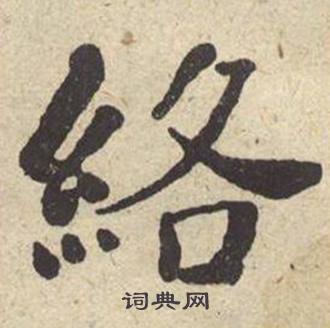 絡
词典网